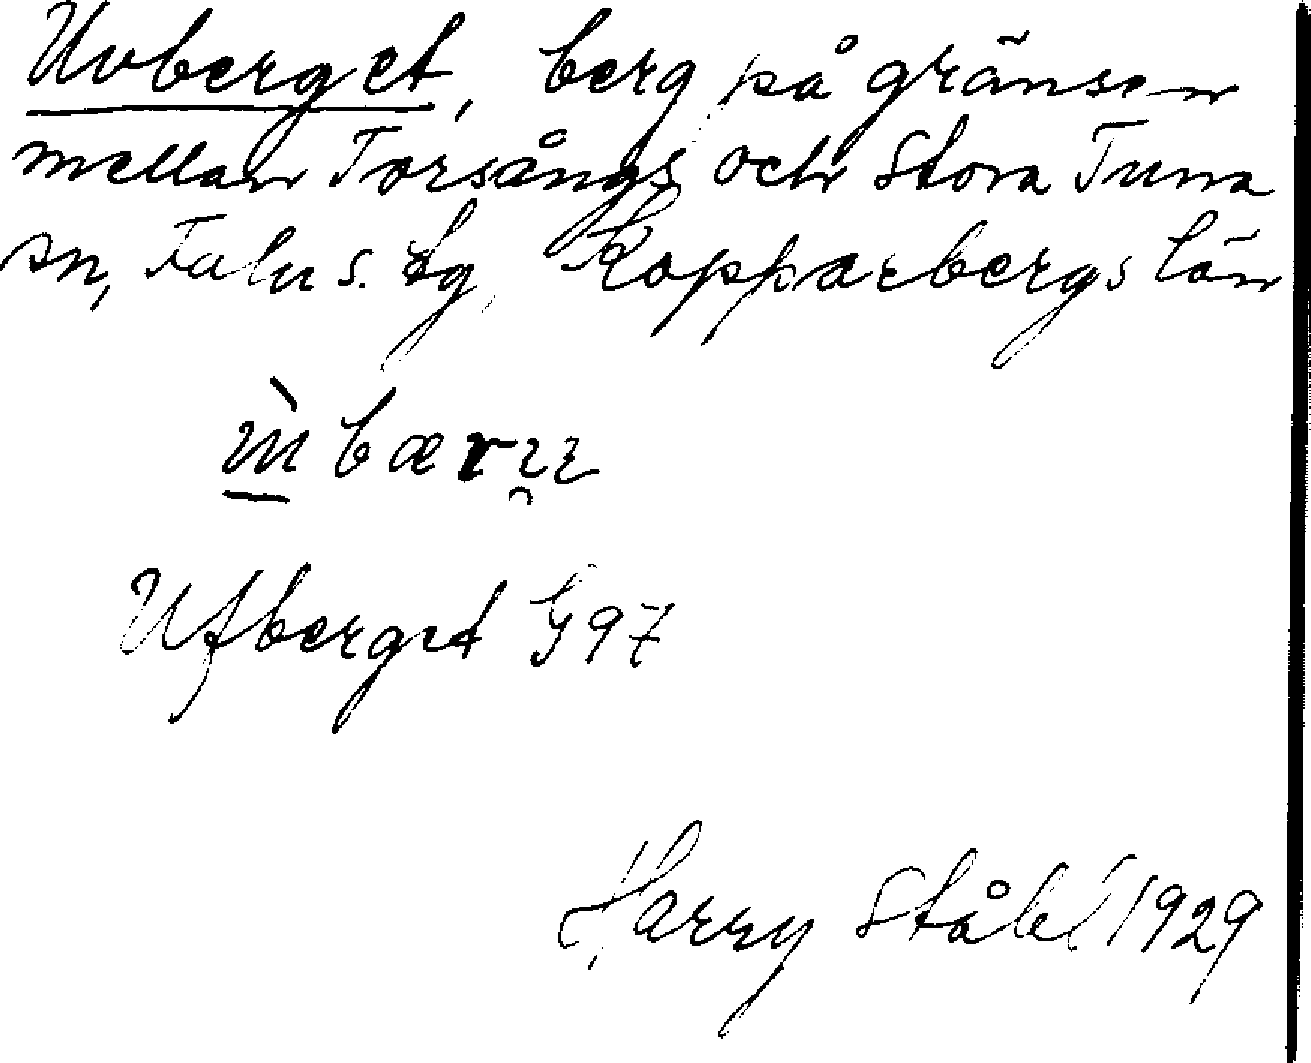 Uvberget, berg på gränsen
mellan Torsångs och Stora Tuna
sn, Falu s. tg, Kopparbergs län
Ufberget G 97
Harry Ståhl 1929